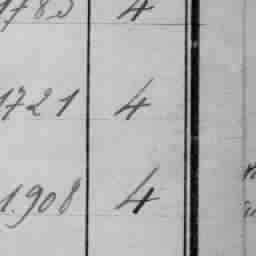 1785 4
1721 4
1.908 4